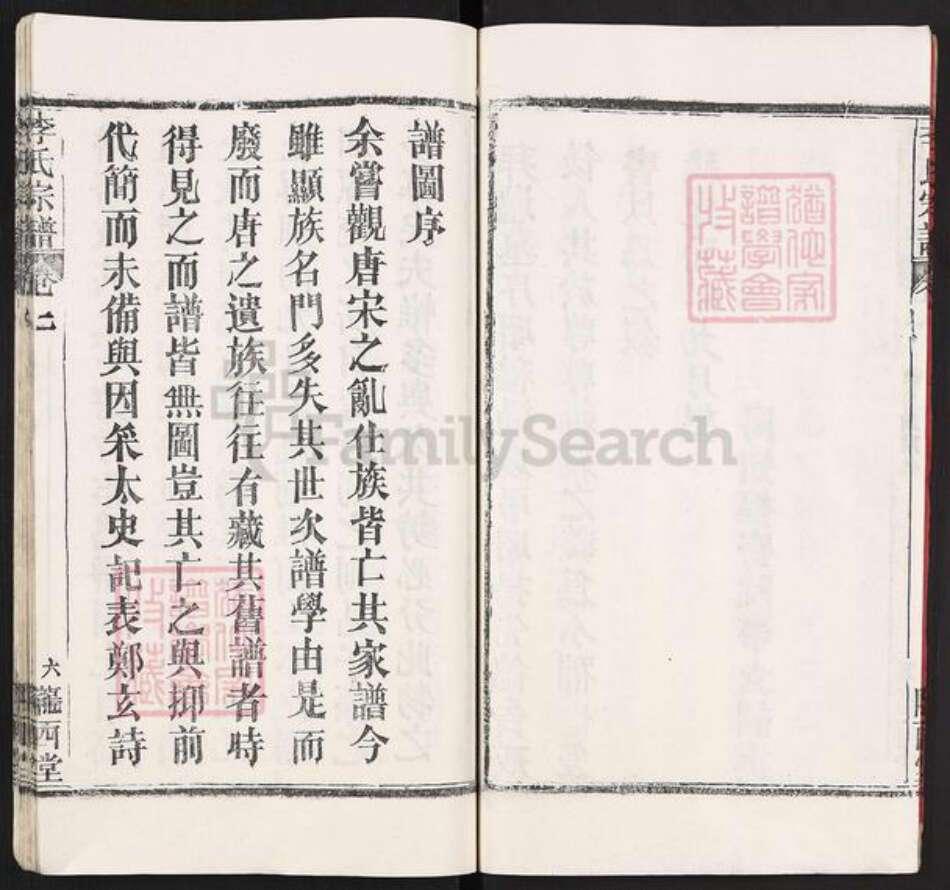 譜圖序
余嘗觀唐宋之亂仕族皆亡其家譜今
雖顯族名門多失其世次譜學由是而
廢而唐之遺族往往有藏其舊譜者時
得見之而譜皆無圖豈其亡之與抑前
代簡而未備與因采太史記表鄭玄詩
李氏宗譜
卷二
六
隴西堂
譜學會
收藏
FamilySearch